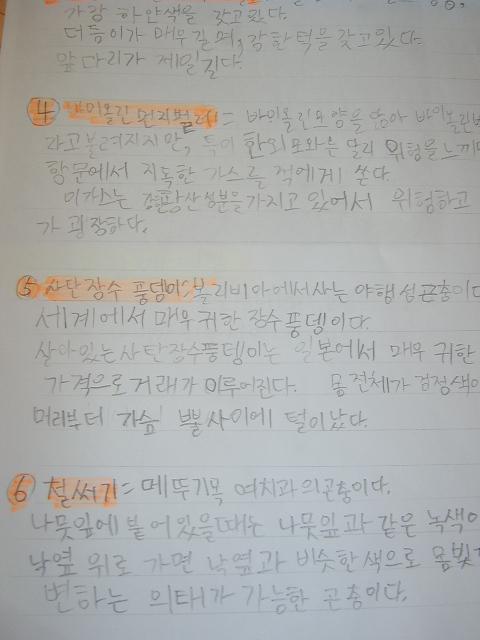 가장 하얀색을 갖고있다.
더듬이가 매우길며, 강한턱을 갖고있다.
앞다리가 제일길다.
4 바이올린 먼지벌레= 바이올린모양을 닮아 바이올린벌
라고불려지지만, 특이 한외모와는 달리 위험을느끼면
항문에서 지독한 가스를 적에게 쏜다.
이가스는 황산성분을가지고 있어서 위험하고
가 굉장하다.
⑤ 사탄장수 풍뎅이= 볼리비아에서사는 야행성곤충이다
세계에서 매우귀한 장수풍뎅이다.
살아있는사탄장수풍뎅이는 일본에서 매우 귀한
가격으로거래가 이루어진다. 몸전체가 검정색이
머리부터 가슴 뿔사이에 털이났다.
6 철써기= 메뚜기목 여치과의곤충이다.
나뭇잎에 붙어있을때는 나뭇잎과같은 녹색이
낙옆 위로 가면 낙옆과 비슷한색으로 몸빛
변하는 의태가 가능한 곤충이다.